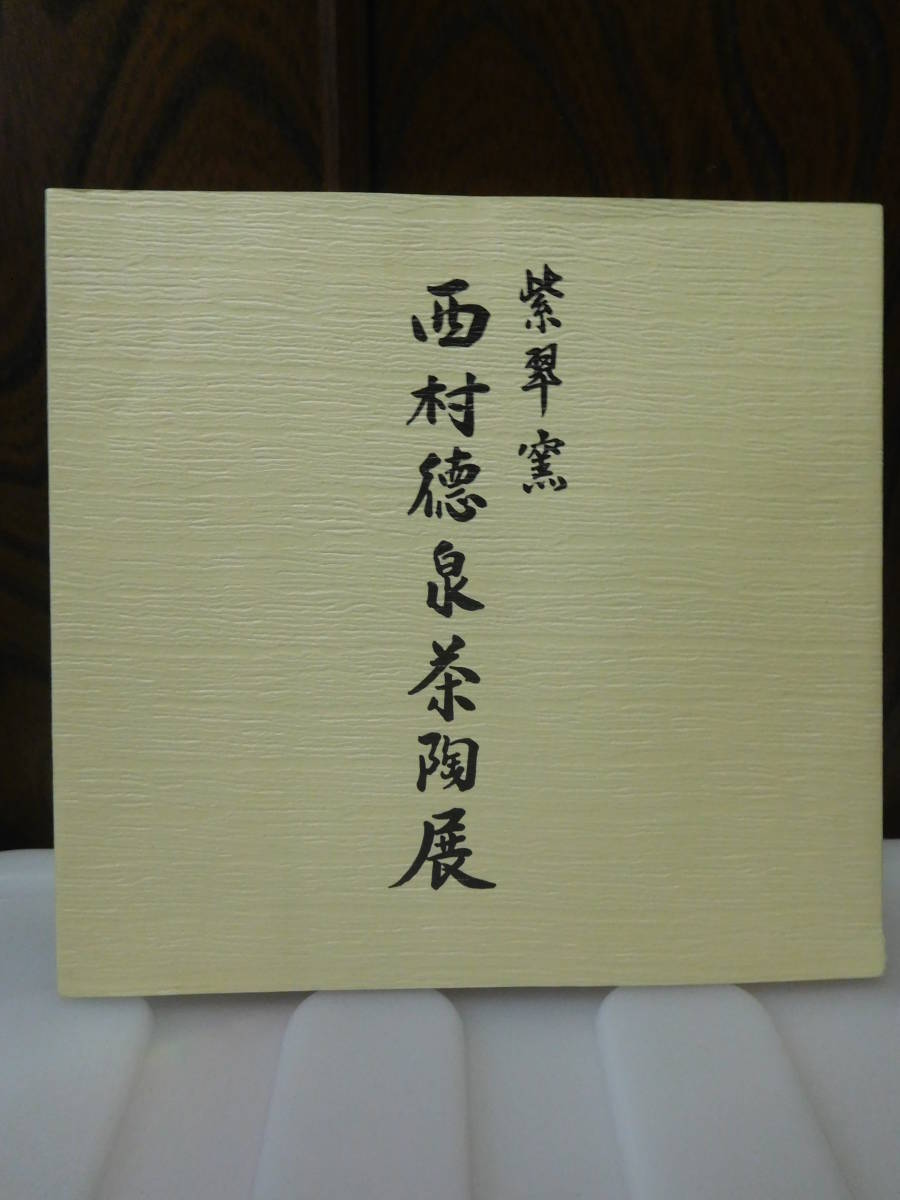 紫翠窯
西村德泉茶陶展